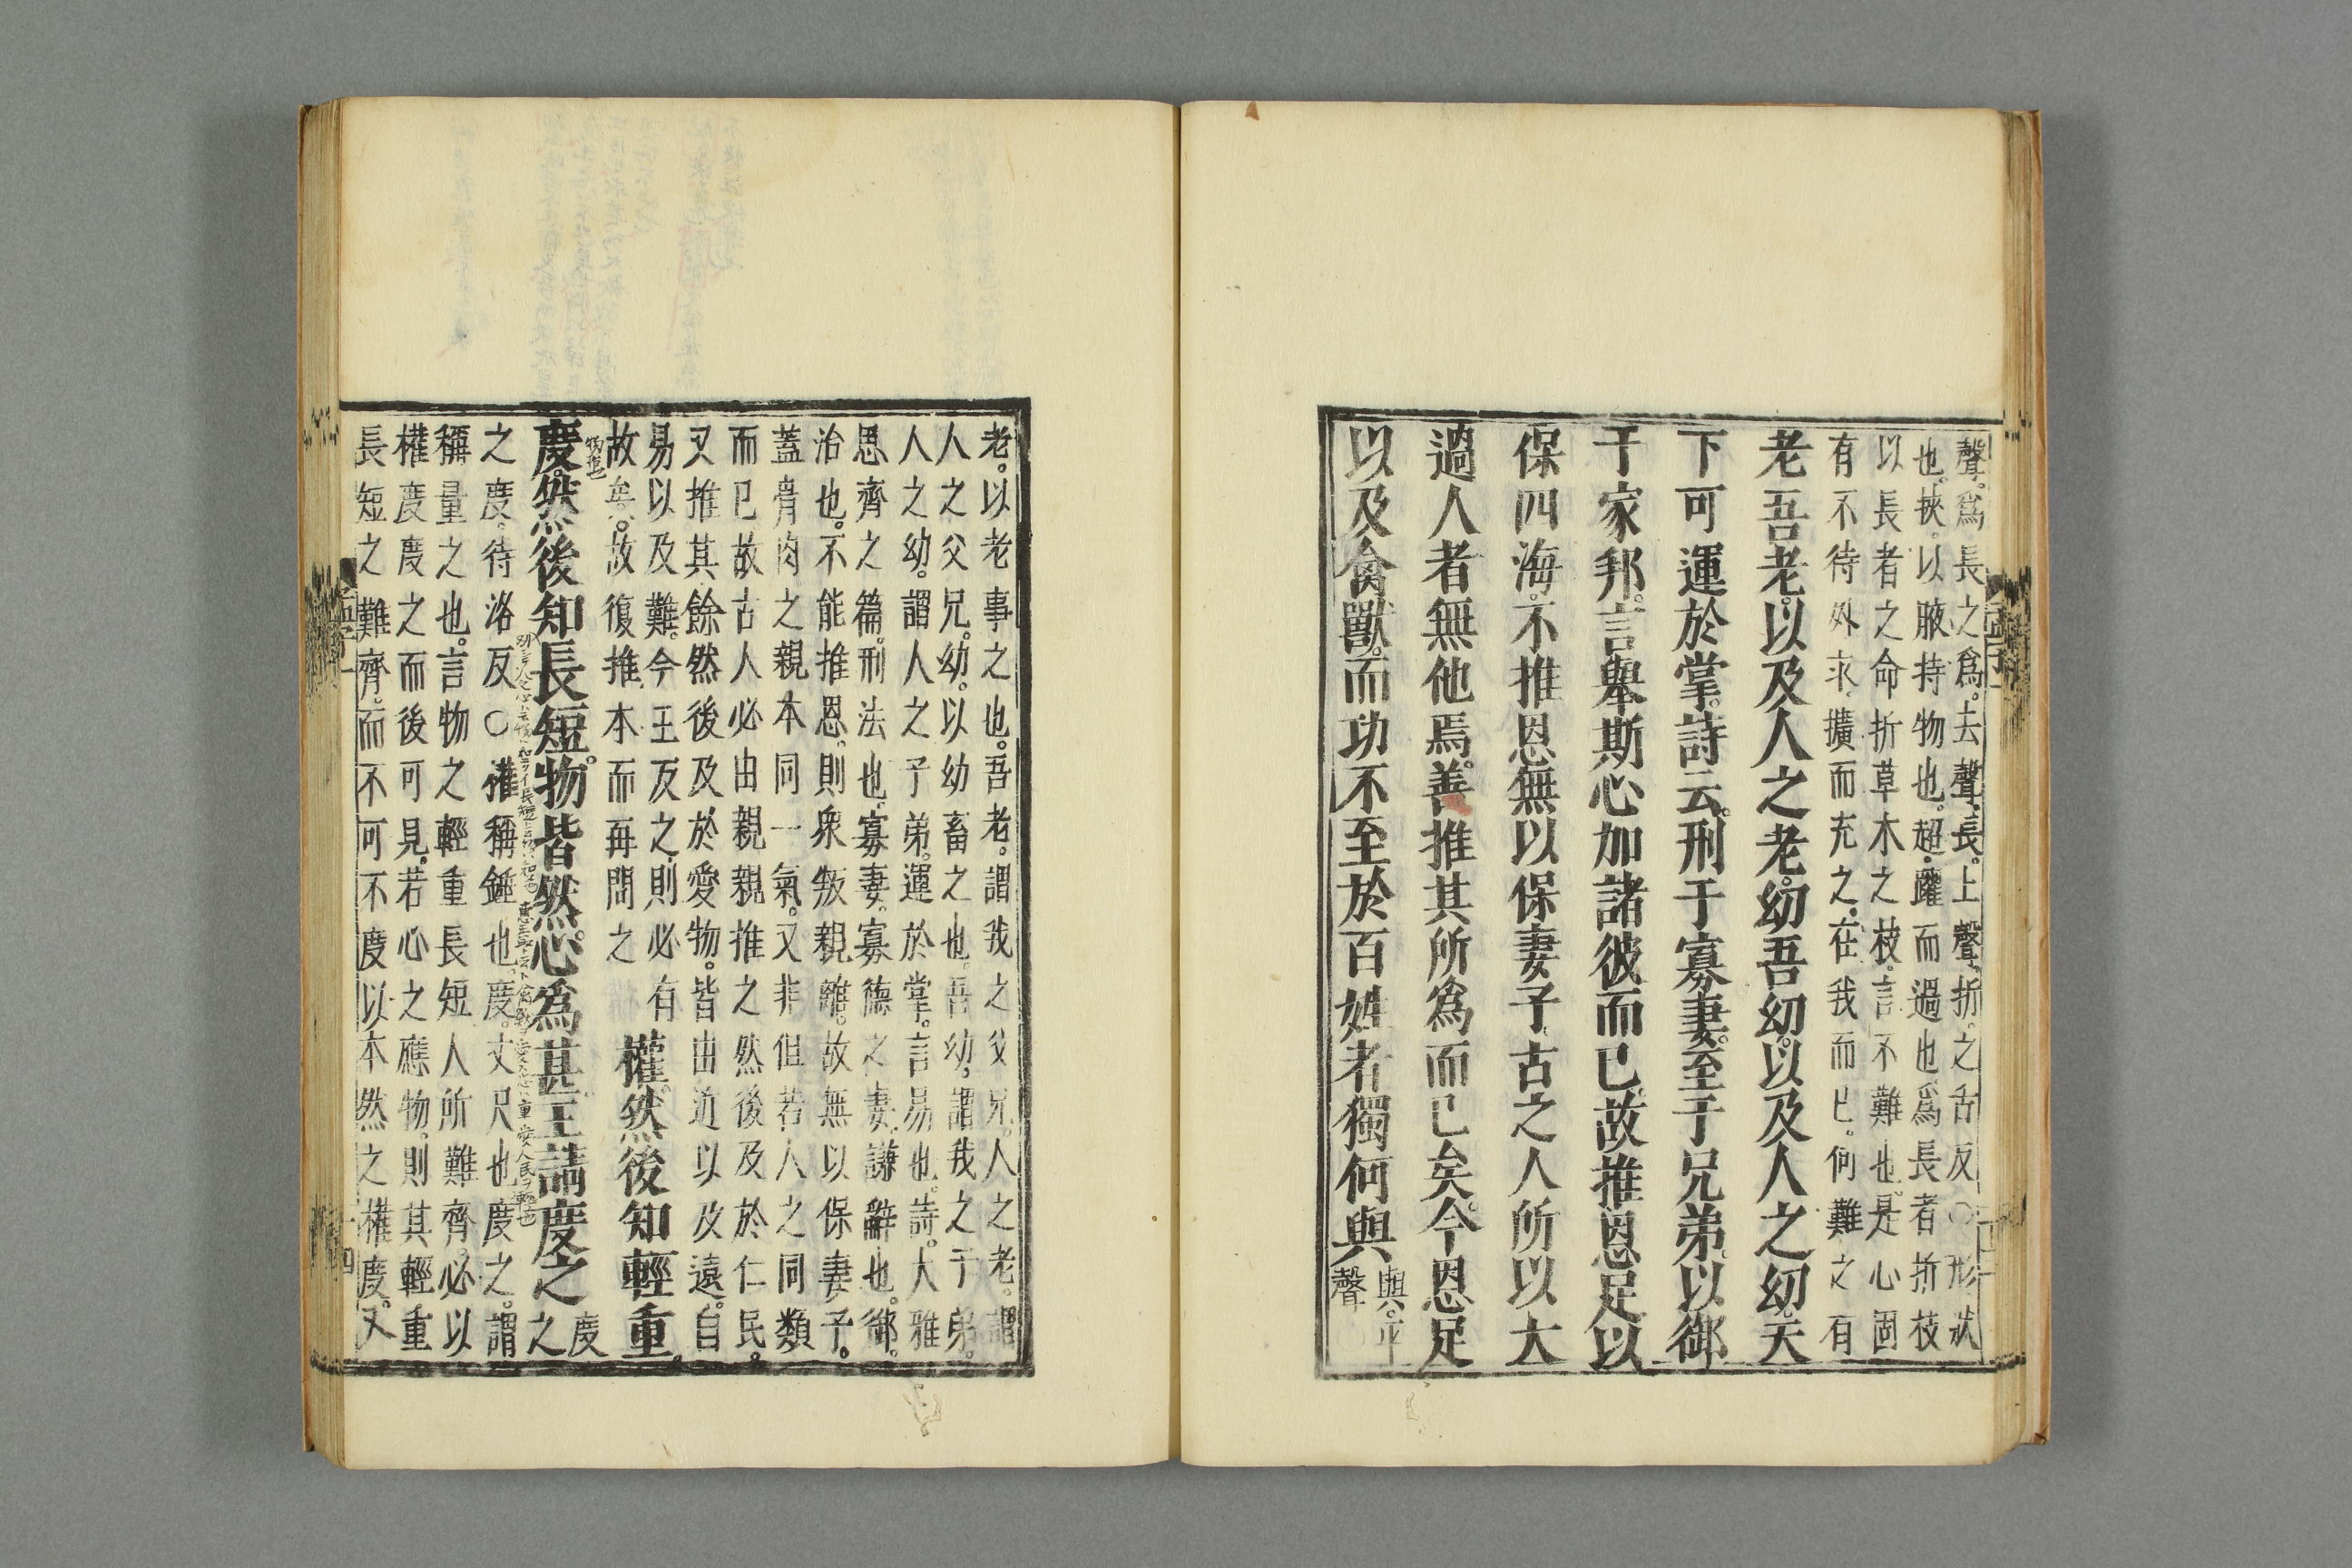 聲。爲長之爲。去聲。長。上聲。折。之舌反○形狀
也。挾。以腋持物也。超。躍而過也爲長者折枝
以長者之命折草木之枝。言不難也。是心固
有不待外求。擴而充之。在我而已。何難之有
老吾老。以及人之老。幼吾幼。以及人之幼。天
下可運於掌。詩云。刑于寡妻。至于兄弟。以御
于家邦。言舉斯心加諸彼而已。故推恩足以
保四海。不推恩無以保妻子。古之人所以大
過人者無他焉。善推其所爲而已矣。今恩足
以及禽獸。而功不至於百姓者獨何與
與。平
聲
老。以老事之也。吾老。謂我之父兄。人之老。謂
人之父兄。幼。以幼畜之也。吾幼。謂我之子弟。
人之幼。謂人之子弟。運於掌。言易也。詩。大雅
思齊之篇。刑法也。寡妻。寡德之妻。謙辭也。御。
治也。不能推恩。則衆叛親離。故無以保妻子。
蓋骨肉之親本同一氣。又非但若人之同類
而已故古人必由親親推之然後及於仁民。
又推其餘然後及於愛物。皆由近以及遠。自
易以及難。今王反之。則必有
故矣。故復推本而再問之
權。然後知輕重。
度。然後知長短。物皆然。心爲甚。王請度之
度
之
之度。待洛反○權稱錘也。度。丈尺也度之。謂
稱量之也。言物之輕重長短人所難齊。必以
權度度之而後可見。若心之應物。則其輕重
長短之難齊。而不可不度以本然之權度。又
孟子一
十四